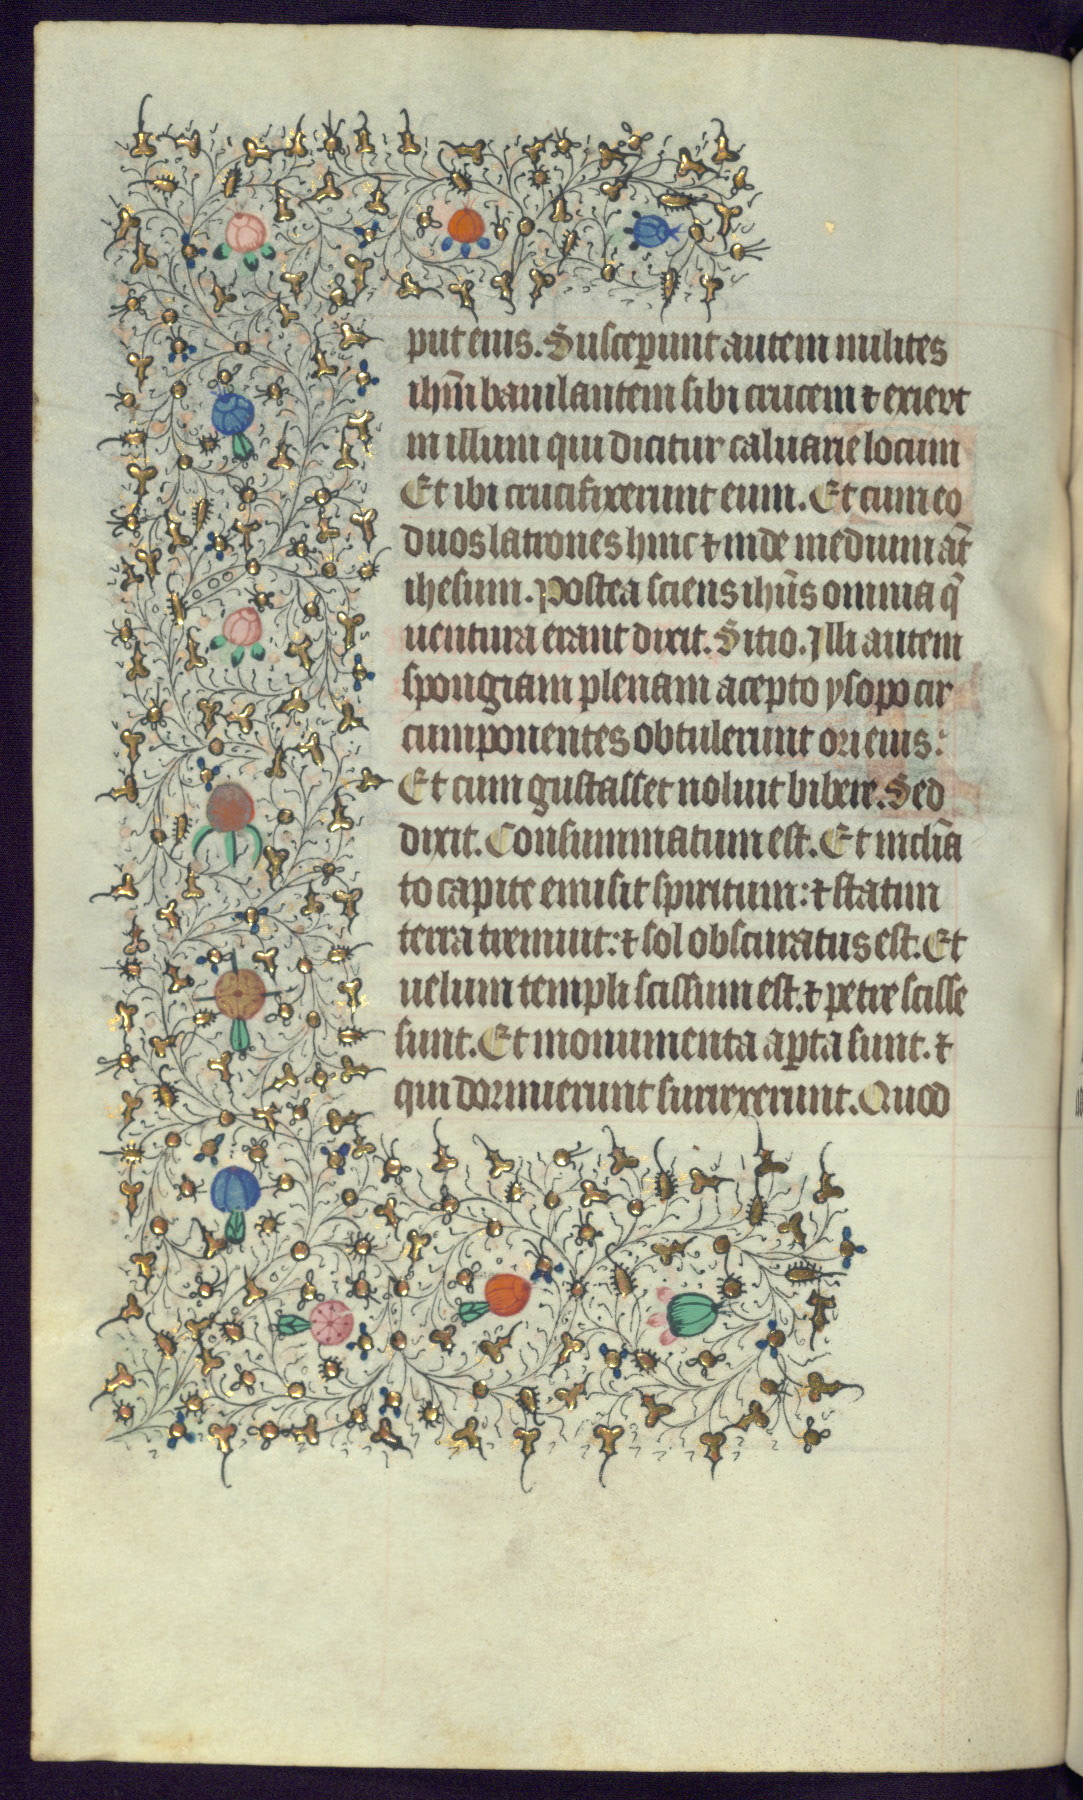 put eius. Susceperunt autem milites
ihm̄ baiulantem sibi crucem ⁊ exiert
in illum qui dicitur caluarie locum
Et ibi crucifixerunt eum. Et cum eo
duos latrones hinc ⁊ inde medium at̄
ihesum. Postea sciens ihūs omnia q̄
uentura erant dixit. Sitio. Illi autem
spongiam plenam acepto ysopo cir
cumponentes obtulerunt ori eius:
Et cum gustasset noluit bibere. Sed
dixit. Consummatum est. Et inclīa
to capite emisit spiritum: ⁊ statim
terra tremuit: ⁊ sol obscuratus est. Et
uelum templi scissum est. ⁊ petre scisse
sunt. Et monumenta aꝑta sunt. ⁊
qui dormierunt surrexerunt. Quod